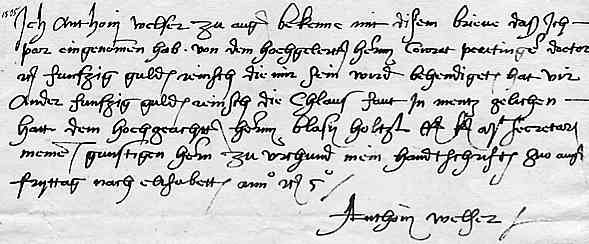 Ich Anthoin welser zu augs bekenne mit disem brieve das Ich
par eingenomen hab von dem hochgelerten herrn Conrat peutinger doctor
funfzig guld reinsch die mir sein wird behendiget hat vir
Ander funfzig guld reinsch die Chlaus In mentz gelichen
hatt dem hochgeachten herrn blasy holtzl secretari
meinem gunstigen hern zu urkund mein handtschrift
freyttag nach elisabett anno
Anthoin welser